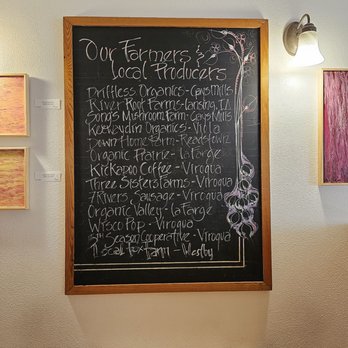 Our Farmers &
Local Producers
Driftless Organics - Gays Mills
River Root Farms - Lansing, IA
Songs Mushroom Farm - Gays Mills
Keewaydin Organics - Viola
Down Home Farm - Readstown
Organic Prairie - LaFarge
Kickapoo Coffee - Viroqua
Three Sisters Farms - Viroqua
7 Rivers Sausage - Viroqua
Organic Valley - LaFarge
Wisco Pop - Viroqua
5th Season Cooperative - Viroqua
Farm - Westby